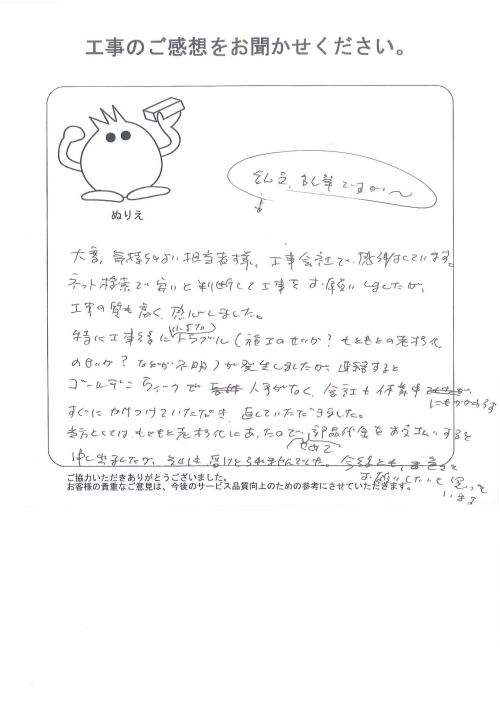 工事のご感想をお聞かせください。
ぬりえ
乱文、乱筆ですが〜
大変、気持ちよい担当者様、工事会社で感謝しています。
ネット検索で安いと判断して工事をお願いしましたが、
工事の質も高く、感心しました。
特に工事後に小さなトラブル(施工のせいか?もともとの老朽化
のせいか?などが不明)が発生しましたが、連絡すると
ゴールデンウィークで 人手がなく、会社も休業中にもかかわらず
すぐにかけつけていただき 直していただきました。
当方としては、もともと老朽化にあったので、せめて部品代金をお支払いすると
申し出ましたが、 受けとられませんでした。今後とも、
お願いしたいと思っています
ご協力いただきありがとうございました。
お客様の貴重なご意見は、今後のサービス品質向上のための参考にさせていただきます。